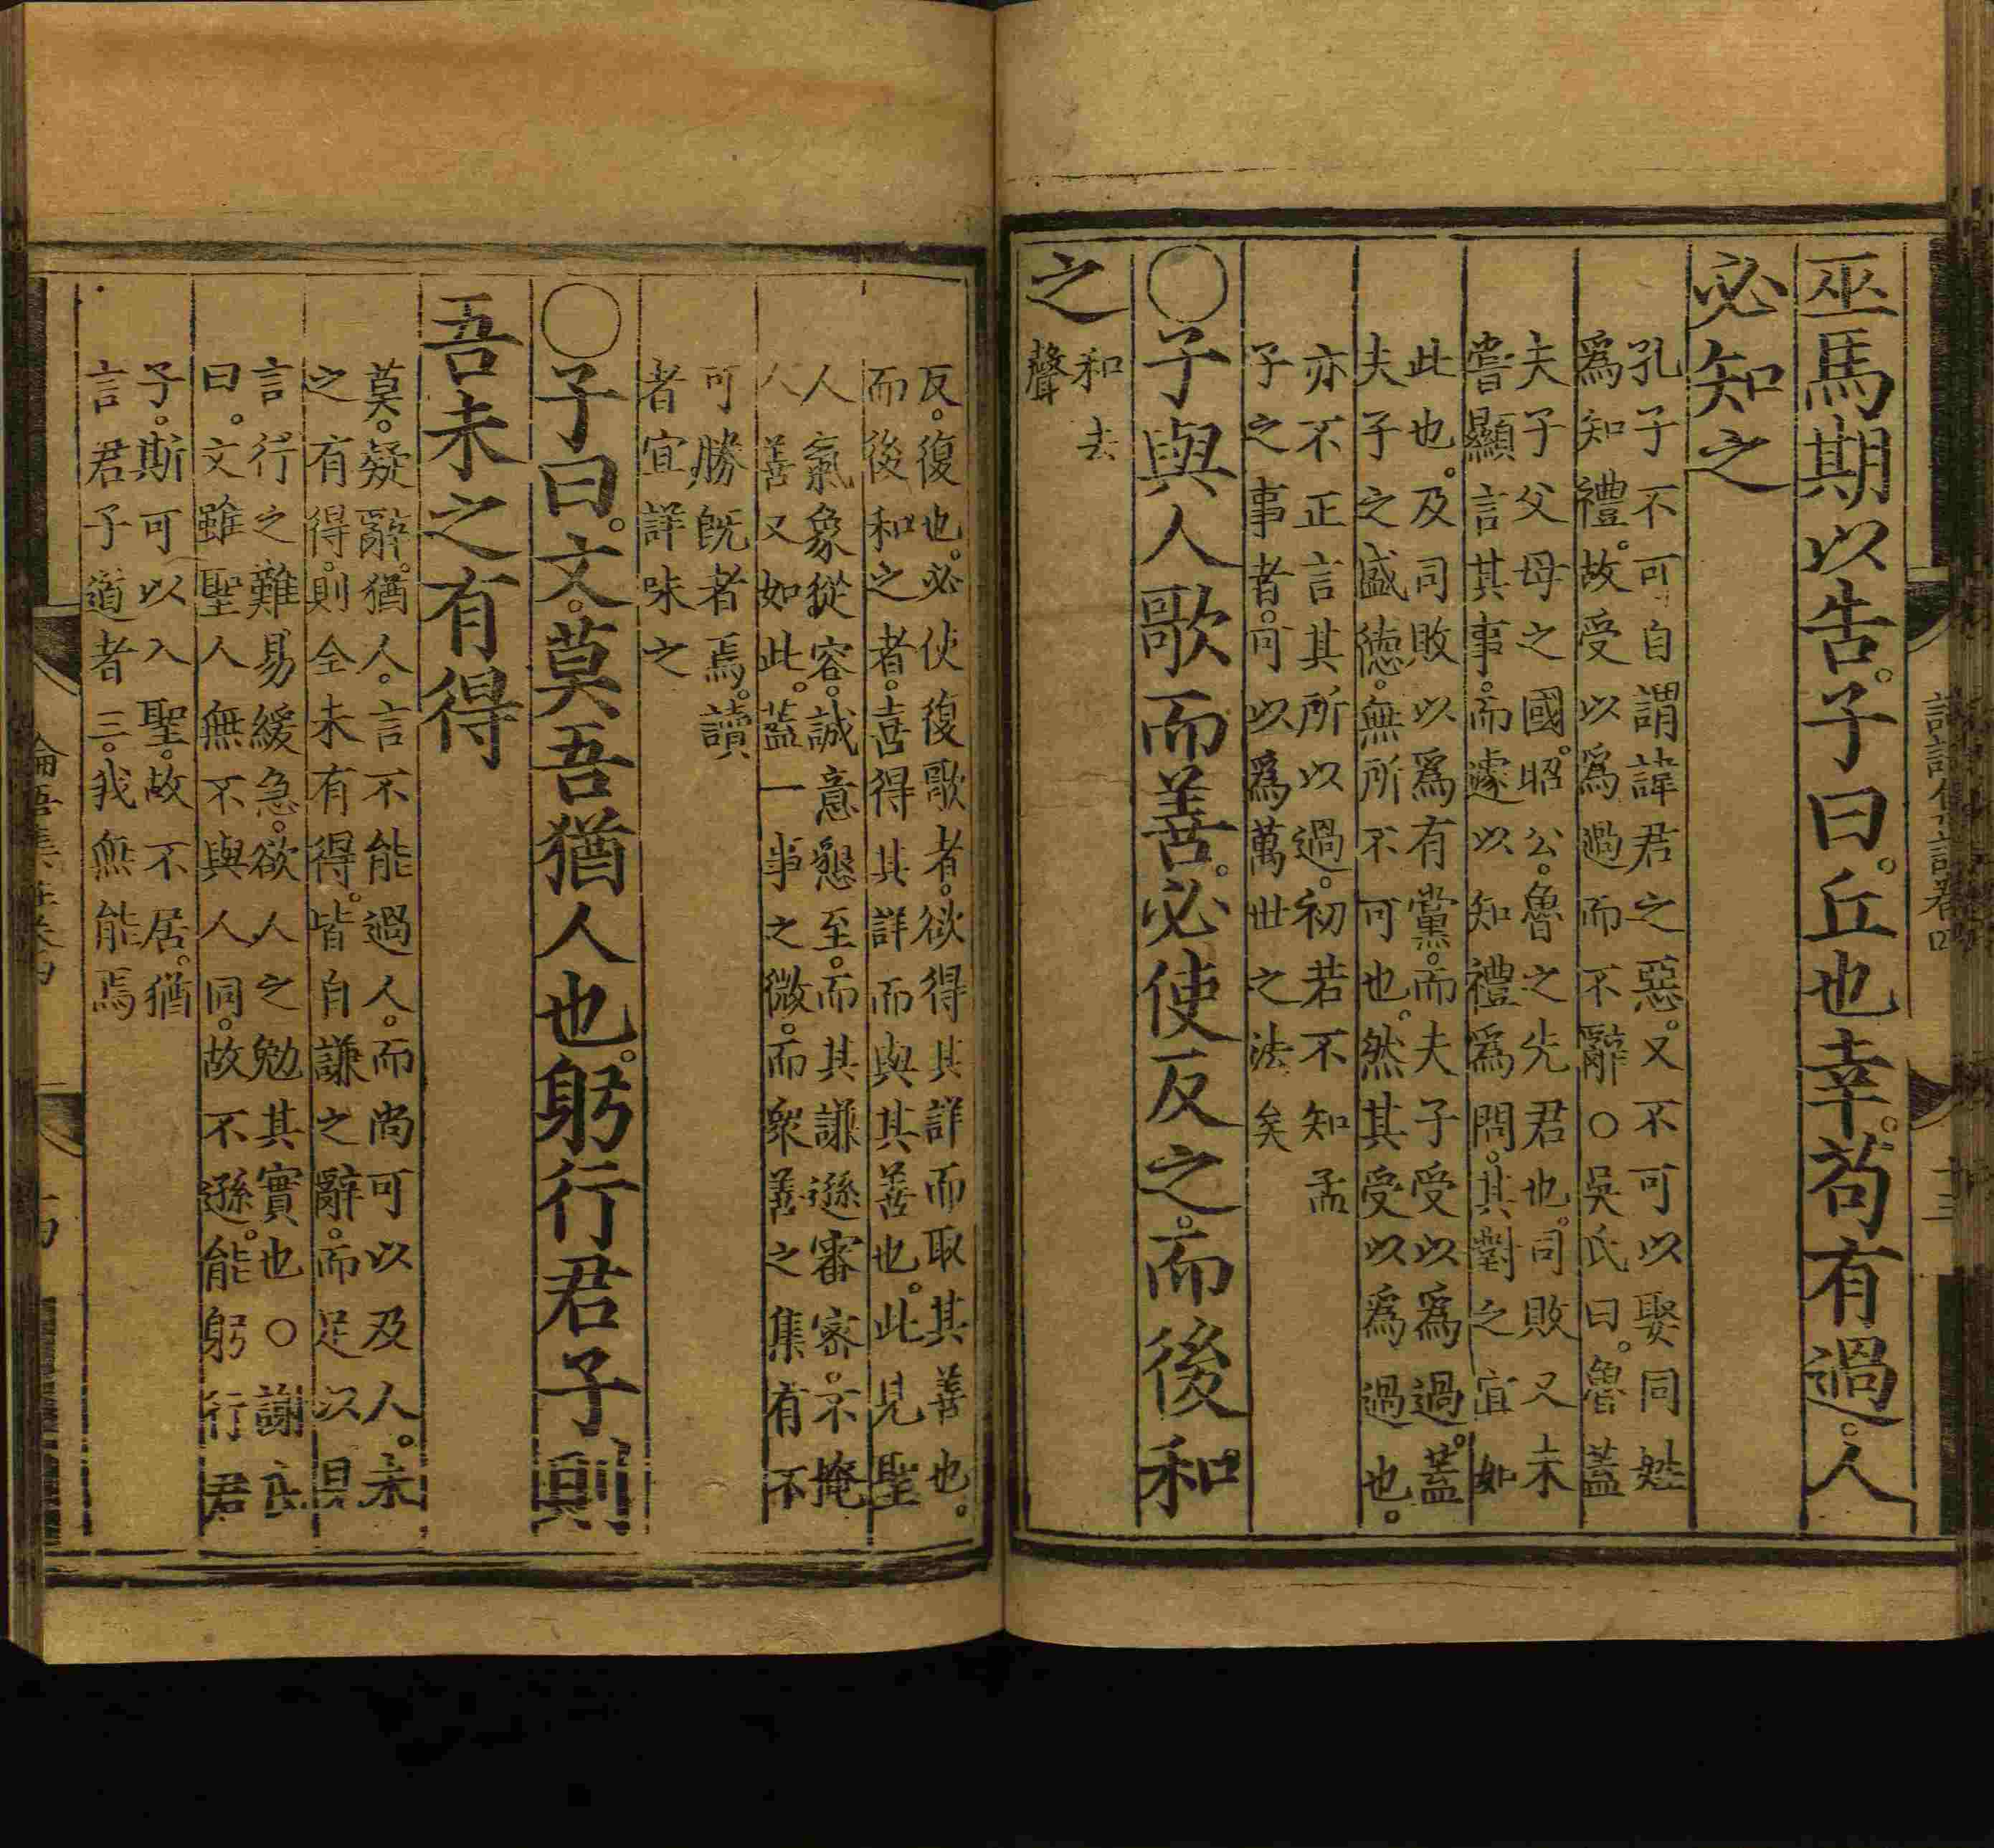 巫馬期以告。子曰。丘也幸。苟有過。人
必知之
孔子不可自謂諱君之惡。又不可以娶同姓
爲知禮。故受以爲過而不辭○吳氏曰。魯蓋
夫子父母之國。昭公。魯之先君也。司敗又未
嘗顯言其事。而遽以知禮爲問。其對之宜如
此也。及司敗以爲有黨。而夫子受以爲過。蓋
夫子之盛德。無所不可也。然其受以爲過也。
亦不正言其所以過。初若不知孟
子之事者。可以爲萬世之法矣
○子與人歌而善。必使反之。而後和
之
和去
聲
反。復也。必使復歌者。欲得其詳而取其善也。
而後和之者。喜得其詳而與其善也。此見聖
人氣象從容。誠意懇至。而其謙遜審密。不掩
人善又如此。蓋一事之微。而衆善之集有不
可勝旣者焉。讀
者宜詳味之
○子曰。文。莫吾猶人也。躬行君子則
吾未之有得
莫。疑辭。猶人。言不能過人。而尚可以及人。未
之有得。則全未有得。皆自謙之辭。而足以見
言行之難易緩急。欲人之勉其實也○謝氏
曰。文雖聖人無不與人同。故不遜。能躬行君
子。斯可以入聖。故不居。猶
言君子道者三。我無能焉
論語集註卷四